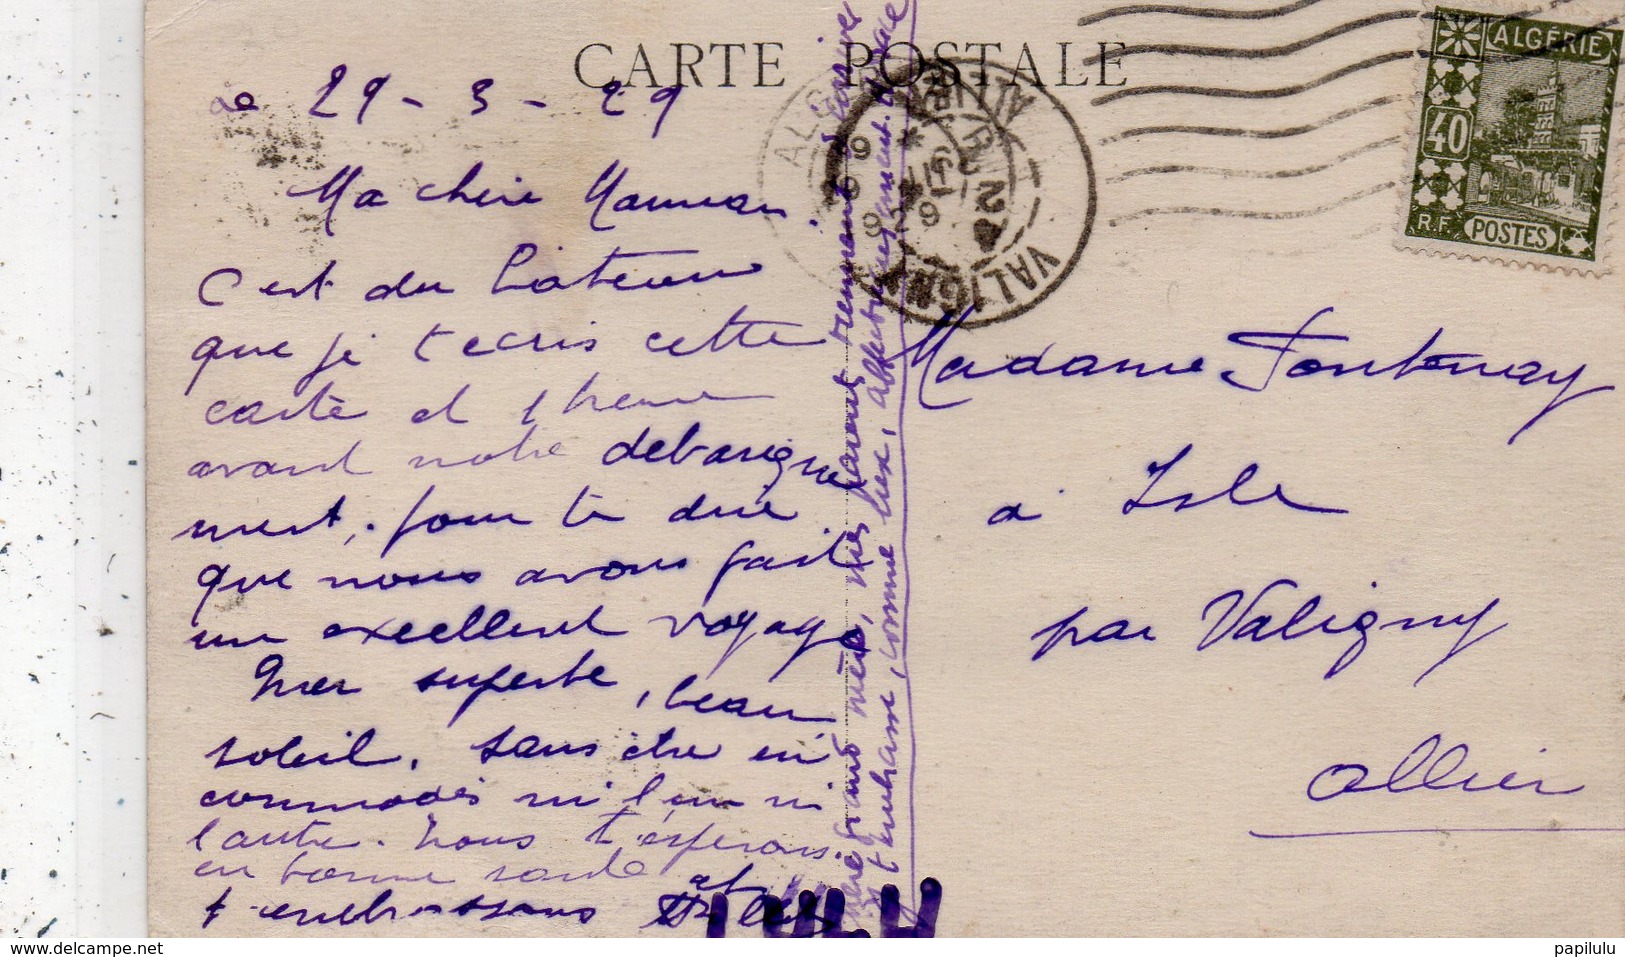 CARTE POSTALE
Le 29 - 3 - 29
Ma chère Maman.
C'est du bateau
que je t'ecris cette
carte et 1 heure
avant notre debarque
ment, pour te dire
que nous avons fait
un excellent voyage
Mer superbe, beau
soleil, sans être in
commodés ni l'un ni
l'autre. Nous t'espérons
en bonne santé et
t'embrassons
grand mère, mes
t'embrasse, comme affectueusement.
ALGÉRIE
40
R.F. POSTES
VALIGNY
ALLIER
Madame Fontenay
à Isle
par Valigny
Allier
www.delcampe.net
papilulu